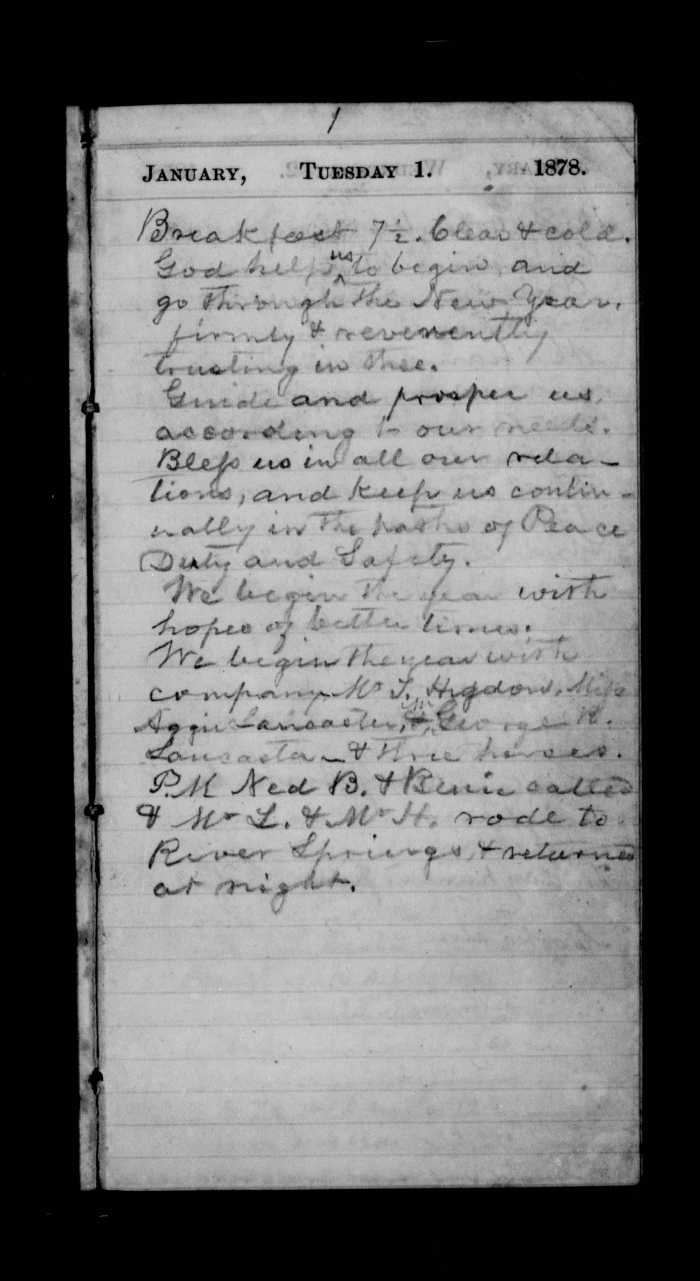 1
January, Tuesday 1. 1878.
Breakfast 7½. Clear & cold.
God help us to begin, and
go through the New Year,
firmly & reverently
trusting in thee.
Guide and prosper us,
according to our needs.
Bless us in all our rela-
tions, and keep us contin-
ually in the paths of Peace
Duty and Safety.
We begin the year with
hopes of better times.
We begin the year with
company Mr T. Higdon, Miss
Aggie Lancaster, & George R.
Lancaster & three horses.
P.M Ned B. & Benie called
& Mr L. & Mr H. rode to
River Springs & returned
at night.